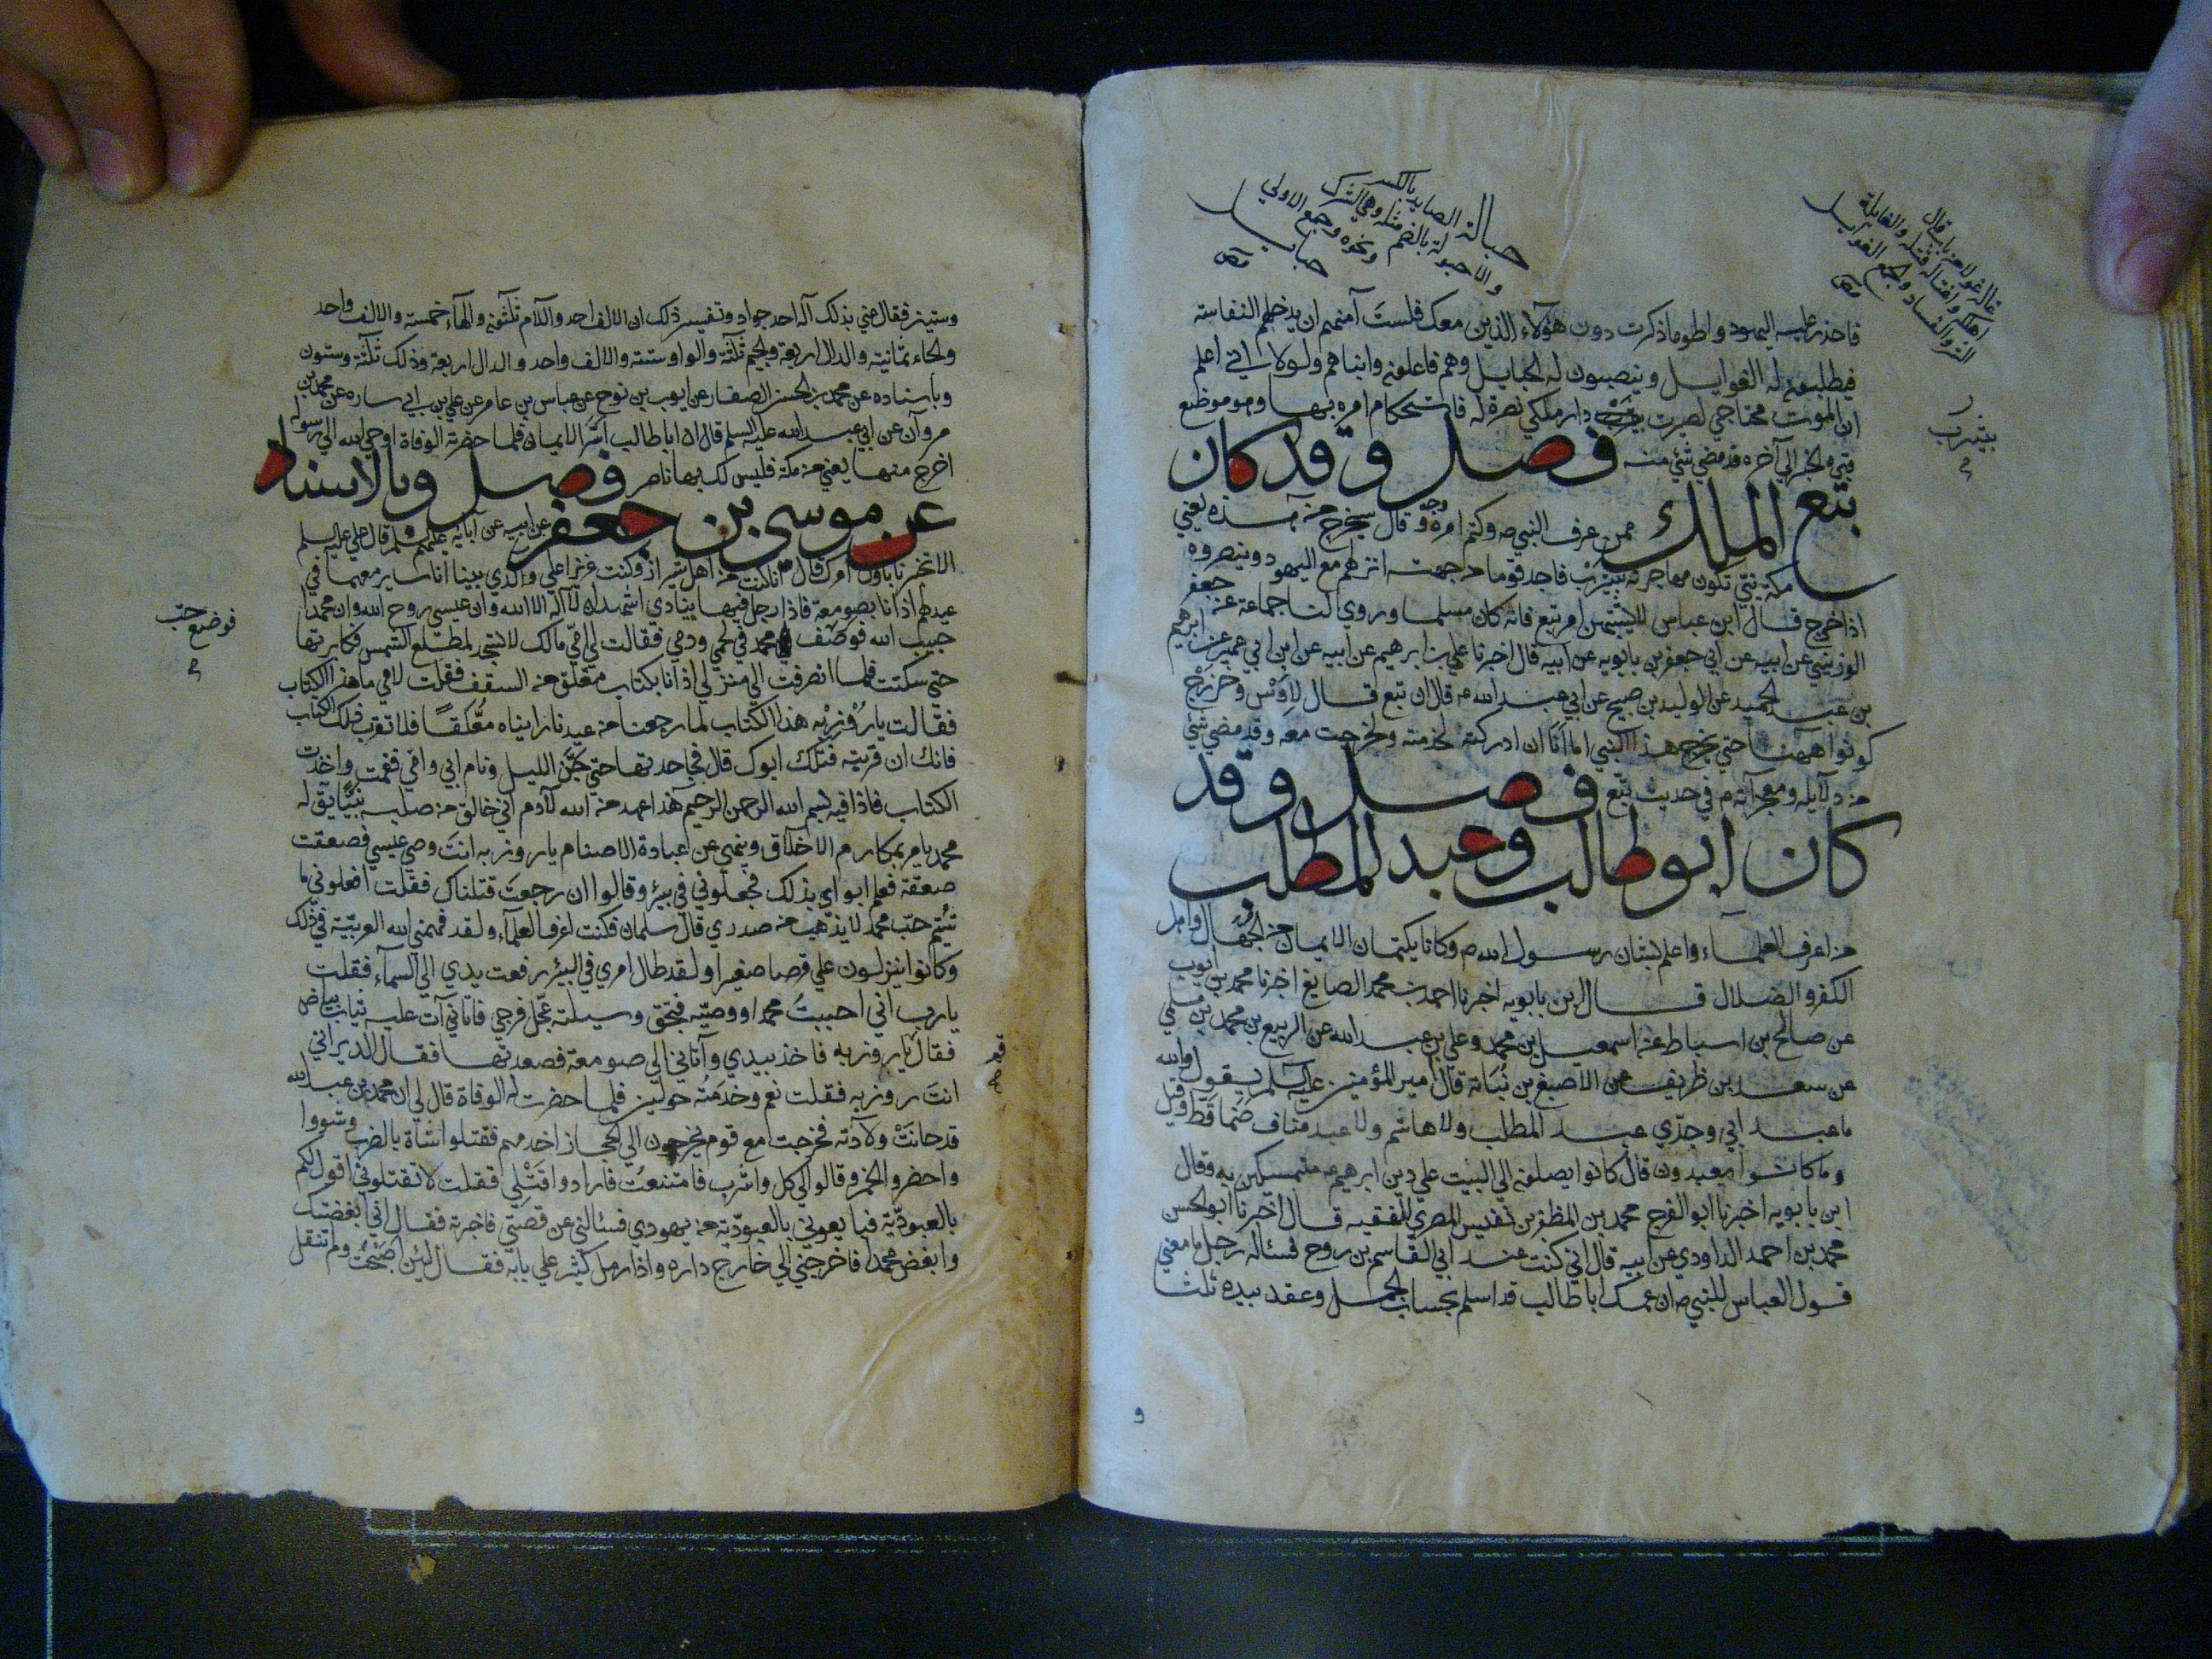 غاله غولا من باب قال
اهلكه واغتاله قتله والغايلة
الشر والفساد والجمع الغوايل
مص
حبالة الصايد بالكسر
والاحبولة بالضم مثله وهي الشرك
ونحوه وجمع الاولي
حبايل
مص
فاحذر عليه اليهود واطو ما ذكرت دون هؤلاء الذين معك فلست آمنهم ان يدخلهم النفاسة
فيطلبون له الغوايل وينصبون له الحبايل وهم فاعلون وابناهم ولولا اني اعلم
ان الموت مجتاحي لصيرت بيثرب دار ملكي نصرة له فان استحكام امره بها وهو موضع
يثرب
قبره الخبر الي آخره قد مضي شئ منه فصل وقد كان
تبع الملك ممن عرف النبي ص وكتم امره وقال سيخرج من هذه يعني
مكة نبي تكون مهاجرته يثرب فاخذ قوما من اليهود وينصروه
اذا خرج قال ابن عباس لا يشتبهن امر تبع فانه كان مسلما وروي لنا جماعة عن جعفر
عن ابيه عن ابي جعفر بن بابويه عن ابيه قال اخبرنا علي بن ابرهيم عن ابيه عن ابن ابي عمير عن ابرهيم
بن عبد الحميد عن الوليد بن صبيح عن ابي عبد الله ع قال ان تبع قال لاوس وخزرج
كونوا ههنا حتي يخرج هذا النبي اما انا ان ادركته لخدمته ولخرجت معه وقد مضي شئ
من دلايله ومعجزاته م في حديث تبع فصل وقد
كان ابو طالب وعبد المطلب
من اعرف العلماء واعلم بشان رسول الله ص وكانا يكتمان الايمان من الجهال واهل
الكفر والضلال قال ابن بابويه اخبرنا احمد بن محمد الصايغ اخبرنا محمد بن ايوب
عن صالح بن اسباط عن اسمعيل بن محمد وعلي بن عبد الله عن الربيع بن محمد بن سلمي
عن سعد بن ظريف عن الاصبغ بن نباتة قال امير المؤمنين عليه السلم يقول والله
ما عبد ابي وجدي عبد المطلب ولا هاشم ولا عبد مناف صنما قط وقيل
وما كانوا يعبدون قال كانوا يصلون الي البيت علي دين ابرهيم ع متمسكين به وقال
ابن بابويه اخبرنا ابو الفرج محمد بن المظفر بن نفيس المصري الفقيه قال اخبرنا ابو الحسن
محمد بن احمد الداودي عن ابيه قال اني كنت عند ابي القاسم بن روح فسئاله رجل ما معني
قول العباس للنبي ص ان عمك ابا طالب قد اسلم بحساب الجمل وعقد بيده ثلثا
و
وستين فقال عني بذلك آله احد جواد وتفسير ذلك ان الالف احد واللام ثلثون والهاء خمسة والالف واحد
والحاء ثمانية والدال اربعة والجيم ثلثة والواو ستة والالف واحد والدال اربعة وذلك ثلثة وستون
وباسناده عن محمد بن الحسن الصفار عن ايوب بن نوح عن عباس بن عامر عن علي بن ابي ساره عن محمد بن
مروان عن ابي عبد الله عليه السلم قال ان ابا طالب اسر الايمان فلما حضرته الوفاة اوحي الله الي رسوله
اخرج منها يعني من مكة فليس لك بها ناصر فصل وبالاسناد
عن موسى بن جعفر عن ابيه عن آبائه عليهم السلم قال علي عليه السلم
الا تخبرنا باول امرك قال انا كنت من اهل شيراز وكنت عزيزا علي والدي بينا انا ساير معهما في
عيد لهم اذ انا بصومعة فاذا رجل فيها ينادي اشهد ان لا اله الا الله وان عيسي روح الله وان محمدا
حبيب الله فوصف محمد في لحمي ودمي فقالت لي امي مالك لا تسجد لمطلع الشمس فكابرتها
فوضع حب
حتي سكتت فلما انصرفت الي منزلي اذا انا بكتاب معلق من السقف فقلت لامي ما هذا الكتاب
فقالت يا روزبه هذا الكتاب لما رجعنا من عيدنا رايناه معلقا فلا تقرب ذلك الكتاب
فانك ان قربته قتلك ابوك قال فجاحدتها حتي جن الليل ونام ابي وامي فقمت واخذت
الكتاب فاذا فيه بسم الله الرحمن الرحيم هذا عهد من الله لآدم اني خالق من صلبه نبيا يق له
محمد يامر بمكارم الاخلاق وينهي عن عبادة الاصنام يا روزبه انت وصي عيسي فصعقت
صعقة فعلم ابواي بذلك فجعلوني في بير وقالوا ان رجعت قتلناك فقلت افعلوني ما
شئتم حب محمد لا يذهب من صدري قال سلمان فكنت اعرف العلماء ولقد فهمني الله العربية في ذلك
وكانوا ينزلون علي قرصا صغيرا ولقد طال امري في البير رفعت يدي الي السماء فقلت
يا رب اني احببت محمدا ووصيه فبحق وسيلته عجل فرجي فاتاني آت عليه ثياب بياض
فقال يا روزبه فاخذ بيدي وآتاني الي صومعة فصعدتها فقال الديراني
انت روزبه فقلت نعم وخدمته حولين فلما حضرت له الوفاة قال لي ان محمد بن عبد الله
قد حانت ولادته فخرجت مع قوم يخرجون الي الحجاز اخدمهم فقتلوا شاة بالضرب وشووا
واحضروا الخمر وقالوا لي كل واشرب فامتنعت فارادوا قتلي فقلت لا تقتلوني اقول لكم
بالعبودية فباعوني بالعبودية من يهودي فسئالني عن قصتي فاخبرته فقال اني ابغضتك
وابغض محمدا فاخرجني الي خارج داره واذا رمل كثير علي بابه فقال لئن اصبحت ولم تنقل